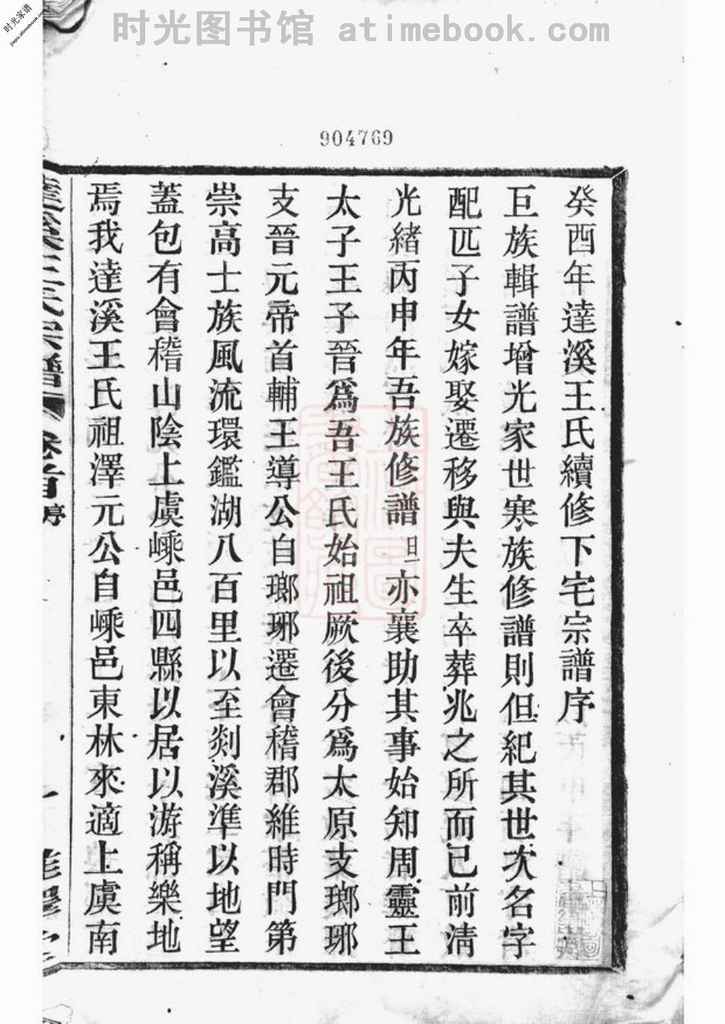 时光图书馆 atimebook.com
时光家谱
904769
癸酉年達溪王氏續修下宅宗譜序
巨族輯譜增光家世寒族修譜則但紀其世次名字
配匹子女嫁娶遷移與夫生卒葬兆之所而已前清
光緒丙申年吾族修譜旦亦襄助其事始知周靈王
太子王子晉爲吾王氏始祖厥後分爲太原支瑯琊
支晉元帝首輔王導公自瑯琊遷會稽郡維時門第
崇高士族風流環鑑湖八百里以至剡溪準以地望
蓋包有會稽山陰上虞嵊邑四縣以居以游稱樂地
焉我達溪王氏祖澤元公自嵊邑東林來適上虞南
達溪王氏宗譜 卷首 序